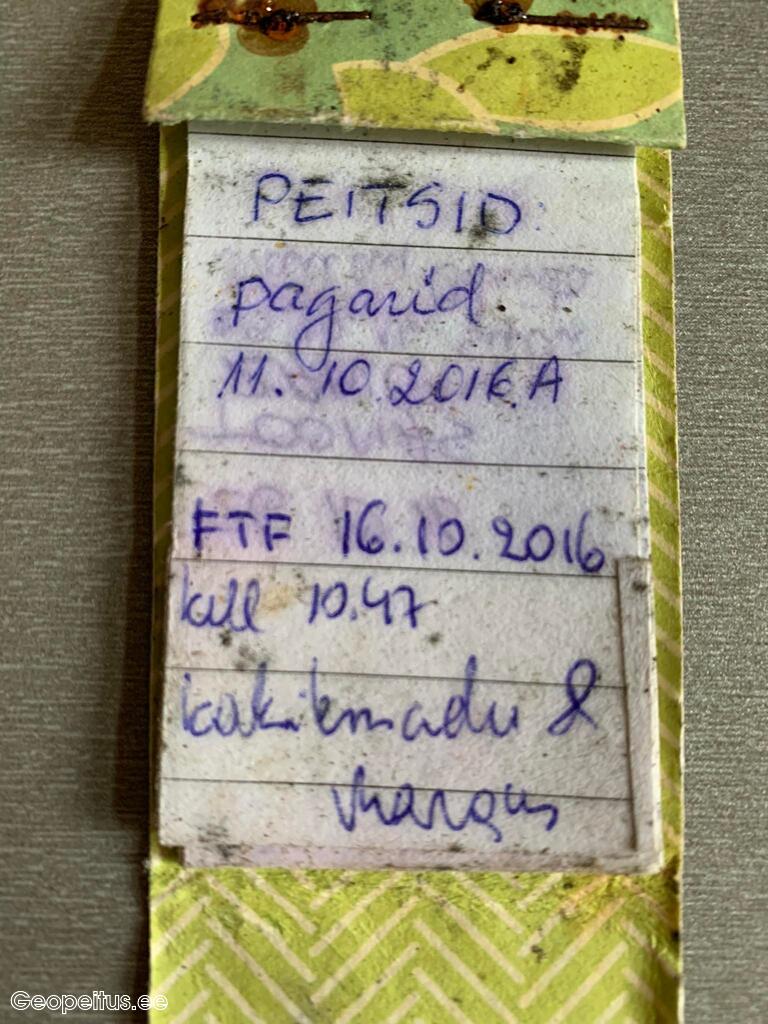 PEITSID:
pagarid.
11.10.2016.A
FTF 16.10.2016
kell 10.47
&
Margus
Geopeitus.ee